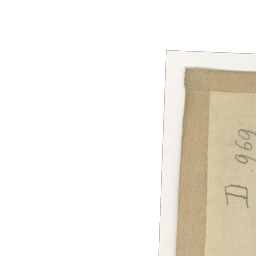 D 969